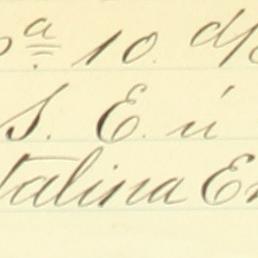 ª 10. d
S. E. ú
talina E